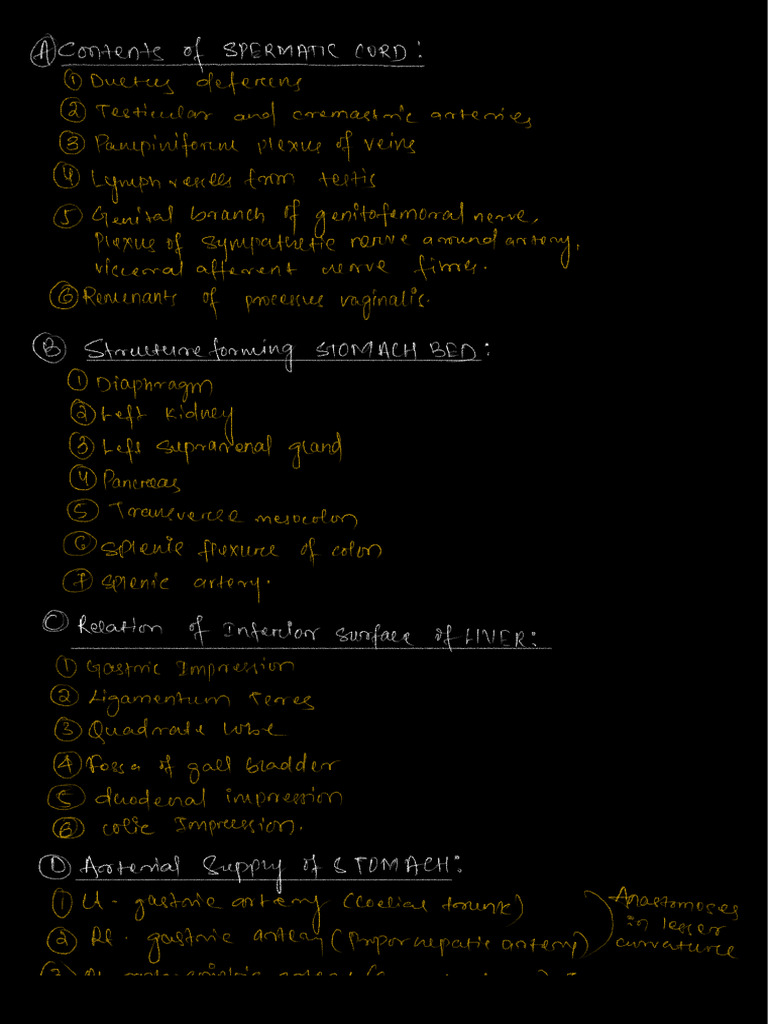 Ⓐ Contents of SPERMATIC CORD:
① Ductus deferens
② Testicular and cremastric arteries
③ Pampiniform plexus of veins
④ Lymph vessels form testis
⑤ Genital branch of genitofemoral nerve,
plexus of sympathetic nerve around artery,
visceral afferent nerve fibres.
⑥ Remenants of processus vaginalis.
Ⓑ Structure forming STOMACH BED:
① Diaphragm
② Left Kidney
③ Left suprarenal gland
④ Pancreas
⑤ Transverse mesocolon
⑥ Splenic flexure of colon
⑦ Splenic artery.
Ⓒ Relation of Inferior surface of LIVER:
① Gastric Impression
② Ligamentum Terres
③ Quadrate lobe
④ Fossa of gall bladder
⑤ duodenal impression
⑥ colic Impression.
Ⓓ Arterial Supply of STOMACH:
① Lt. gastric artery (Coelial trunk)
② Rt. gastric artery (Propor hepatic artery)
Anastomoses
in lesser
curvature